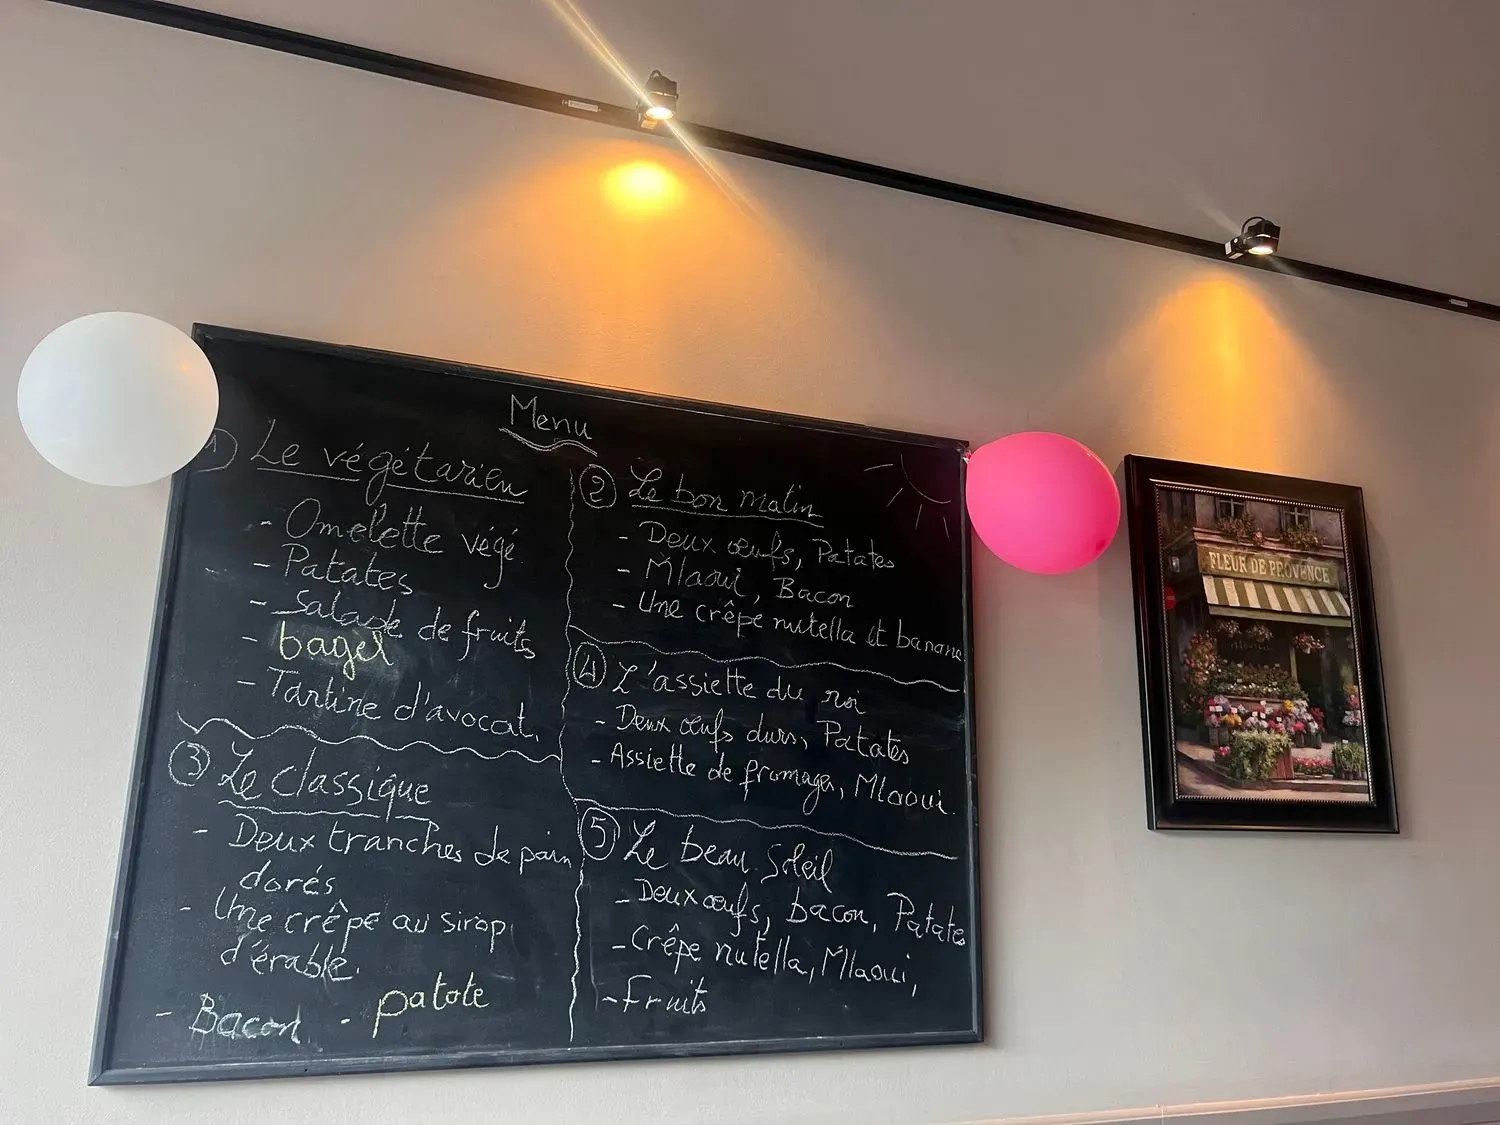 Menu
1) Le végétarien
- Omelette végé
- Patates
- Salade de fruits
- bagel
- Tartine d'avocat.
2 Le bon matin
- Deux œufs, Patates
- Mlaoui, Bacon
- Une crêpe nutella et banane
3 Le classique
- Deux tranches de pain
dorés
- Une crêpe au sirop
d'érable.
- Bacon - patate
4 L'assiette du roi
- Deux œufs durs, Patates
- Assiette de fromage, Mlaoui.
5 Le beau Soleil
- Deux œufs, bacon, Patates
- Crêpe nutella, Mlaoui,
- Fruits
FLEUR DE PROVENCE